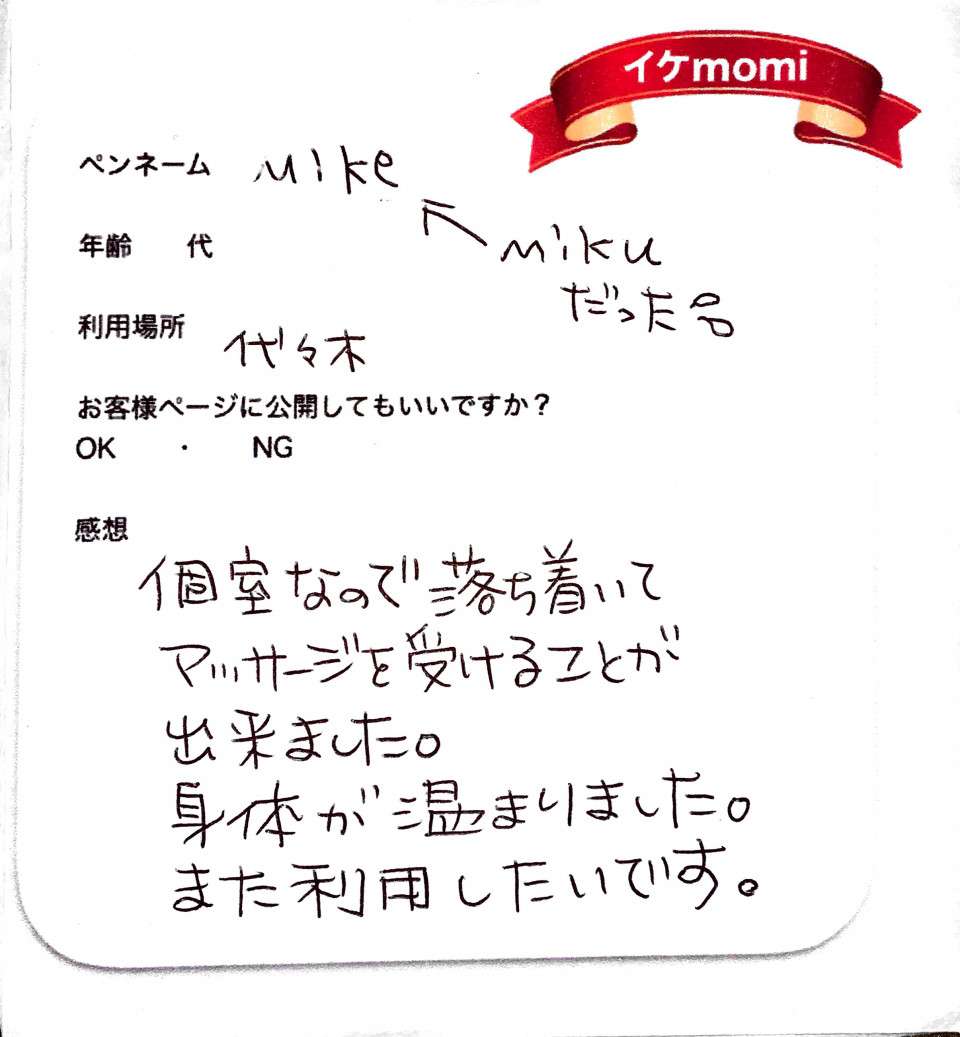 イケmomi
ペンネーム mike
miku
だった
年齢 代
利用場所 代々木
お客様ページに公開してもいいですか？
OK ・ NG
感想
個室なので落ち着いて
マッサージを受けることが
出来ました。
身体が温まりました。
また利用したいです。